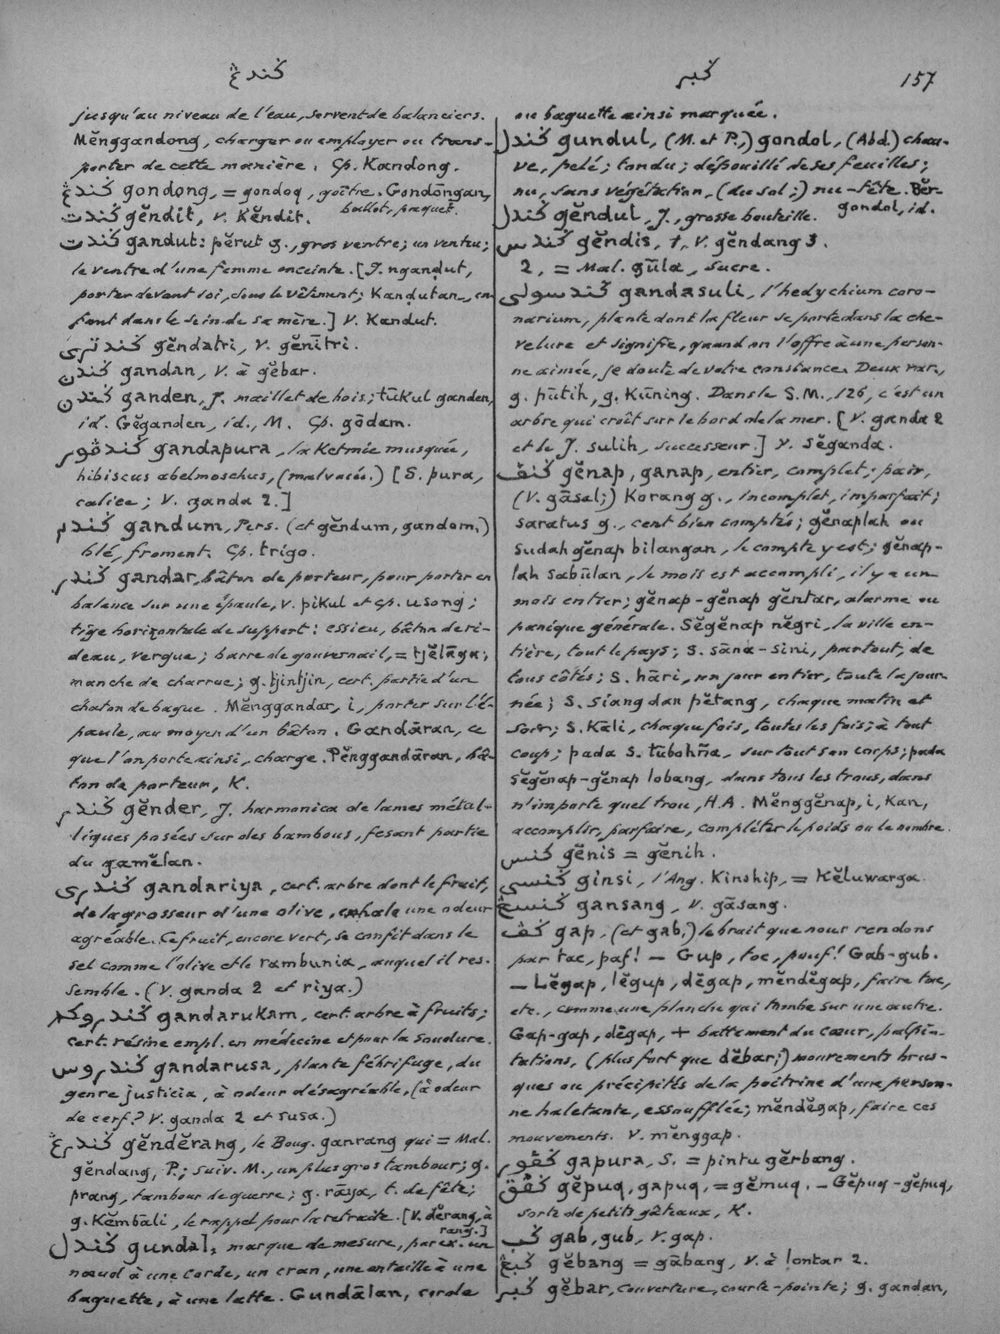 ڬندڠ
ڬبر
157
jusqu'au niveau de l'eau, servent de balanciers.
Mĕnggandong, charger ou employer ou trans-
porter de cette manière. Cp. Kandong.
ڬندڠ gondong, = gondoq, goître. Gondōngan,
ballot, paquet.
ڬندت gĕndit, v. Kĕndit.
ڬندت gandut: pĕrut g., gros ventre; un ventru;
le ventre d'une femme enceinte. [J. nganḍut,
porter devant soi, sous le vêtement; Kanḍutan, en-
fant dans le sein de sa mère.] V. Kandut.
ڬندتري gĕndatri, V. gĕnītri.
ڬندن gandan, V. à gĕbar.
ڬندن ganden, J. maillet de bois; tūkul ganden,
id. Gĕganden, id., M. Cp. gōdam.
ڬندڤور gandapura, la Ketmée musquée,
hibiscus abelmoschus, (malvacée.) [S. pura,
calice; V. ganda 2.]
ڬندم gandum, Pers. (et gĕndum, gandom,)
blé, froment. Cp. trigo.
ڬندر gandar, bâton de porteur, pour porter en
balance sur une épaule, v. pikul et cp. usong;
tige horizontale de support: essieu, bâton de ri-
deau, vergue; barre de gouvernail, = tjĕlāga;
manche de charrue; g. tjintjin, cert. partie d'un
chaton de bague. Mĕnggandar, i, porter sur l'é-
paule, au moyen d'un bâton. Gandāran, ce
que l'on porte ainsi, charge. Pĕnggandāran, bâ-
ton de porteur, K.
ڬندر gĕnder, J. harmonica de lames métal-
liques posées sur des bambous, fesant partie
du gamĕlan.
ڬندري gandariya, cert. arbre dont le fruit,
de la grosseur d'une olive, exhale une odeur
agréable. Ce fruit, encore vert, se confit dans le
sel comme l'olive et le rambunia, auquel il res-
semble. (V. ganda 2 et riya.)
ڬندروكم gandarukam, cert. arbre à fruits;
cert. résine empl. en médecine et pour la soudure.
ڬندروس gandarusa, plante fébrifuge, du
genre justicia, à odeur désagréable, (à odeur
de cerf? V. ganda 2 et rusa.)
ڬندرڠ gĕndĕrang, le Boug. ganrang qui = Mal.
gĕndang, P.; suiv. M., un plus gros tambour; g.
prang, tambour de guerre; g. rāya, t. de fête;
g. Kĕmbāli, le rappel pour la retraite. [V. dĕrang, à
rang.]
ڬندل gundal, marque de mesure, par ex. un
nœud à une corde, un cran, une entaille à une
baguette, à une latte. Gundālan, corde
ou baguette ainsi marquée.
ڬندل gundul, (M. et P.,) gondol, (Abd.) chau-
ve, pelé; tondu; dépouillé de ses feuilles;
nu, sans végétation, (du sol;) nu-tête. Bĕr-
gondol, id.
ڬندل gĕndul, J., grosse bouteille.
ڬندس gĕndis, 1, V. gĕndang 3.
2, = Mal. gūla, sucre.
ڬندسولي gandasuli, l'hedychium coro-
narium, plante dont la fleur se porte dans la che-
velure et signifie, quand on l'offre à une person-
ne aimée, je doute de votre constance. Deux var.,
g. pūtih, g. Kūning. Dans le S.M., 126, c'est un
arbre qui croît sur le bord de la mer. [V. ganda 2
et le J. sulih, successeur.] V. Sĕganda.
ڬنڤ gĕnap, ganap, entier, complet; pair,
(V. gāsal;) Korang g., incomplet, imparfait;
saratus g., cent bien comptés; gĕnaplah ou
sudah gĕnap bilangan, le compte y est; gĕnap-
lah sabūlan, le mois est accompli, il y a un
mois entier; gĕnap-gĕnap gĕntar, alarme ou
panique générale. Sĕgĕnap nĕgri, la ville en-
tière, tout le pays; s. sāna-sini, partout, de
tous côtés; s. hāri, un jour entier, toute la jour-
née; s. siang dan pĕtang, chaque matin et
soir; s. Kāli, chaque fois, toutes les fois; à tout
coup; pada s. tūbohña, sur tout son corps; pada
sĕgĕnap-gĕnap lobang, dans tous les trous, dans
n'importe quel trou, H.A. Mĕnggĕnap, i, Kan,
accomplir, parfaire, compléter le poids ou le nombre.
ڬنس gĕnis = gĕnih.
ڬنسي ginsi, l'Ang. Kinship, = Kĕluwarga.
ڬنسڠ gansang, V. gāsang.
ڬڤ gap, (et gab,) le bruit que nous rendons
par tac, paf! — Gup, toc, pouf! Gab-gub.
— Lĕgap, lĕgup, dĕgap, mĕndĕgap, faire tac,
etc., comme une planche qui tombe sur une autre.
Gap-gap, dĕgap, + battement du cœur, palpi-
tations, (plus fort que dĕbar;) mouvements brus-
ques ou précipités de la poitrine d'une person-
ne haletante, essoufflée; mĕndĕgap, faire ces
mouvements. V. mĕnggap.
ڬڤور gapura, S. = pintu gĕrbang.
ڬڤق gĕpuq, gapuq, = gĕmuq. — Gĕpuq-gĕpuq,
sorte de petits gâteaux, K.
ڬب gab, gub, v. gap.
ڬبڠ gĕbang = gābang, V. à lontar 2.
ڬبر gĕbar, couverture, courte-pointe; g. gandan,